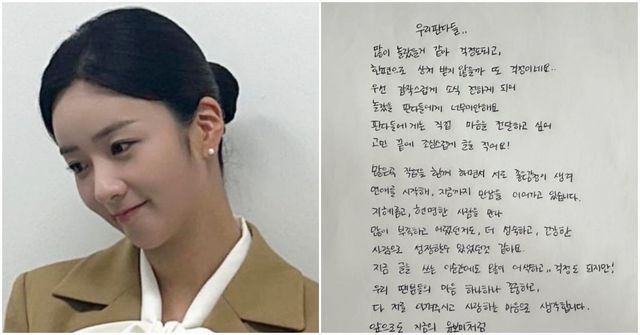 우리판다들..
많이 놀랐을거 같아 걱정도되고,
한편으로 상처 받지 않을까 또 걱정이네요..
우선 갑작스럽게 소식 전하게 되어
놀랐을 판다들에게 너무미안해요
판다들에게는 직접 마음을 전달하고 싶어
고민 끝에 조심스럽게 글을 적어요!
많은곡 작업을 함께 하면서 서로 좋은감정이 생겨
연애를 시작해, 지금까지 만남을 이어가고 있습니다.
지혜롭고, 현명한 사람을 만나
많이 부족하고 어렸던저도, 더 성숙하고, 건강한
사람으로 성장할수 있었던것 같아요.
지금 글을 쓰는 이순간에도 많이 어색하고,, 걱정도 되지만!
우리 팬분들의 마음 하나하나 존중하고,
다 저를 아껴주시고 사랑하는 마음으로 생각합니다.
앞으로도 지금의 윤보미처럼